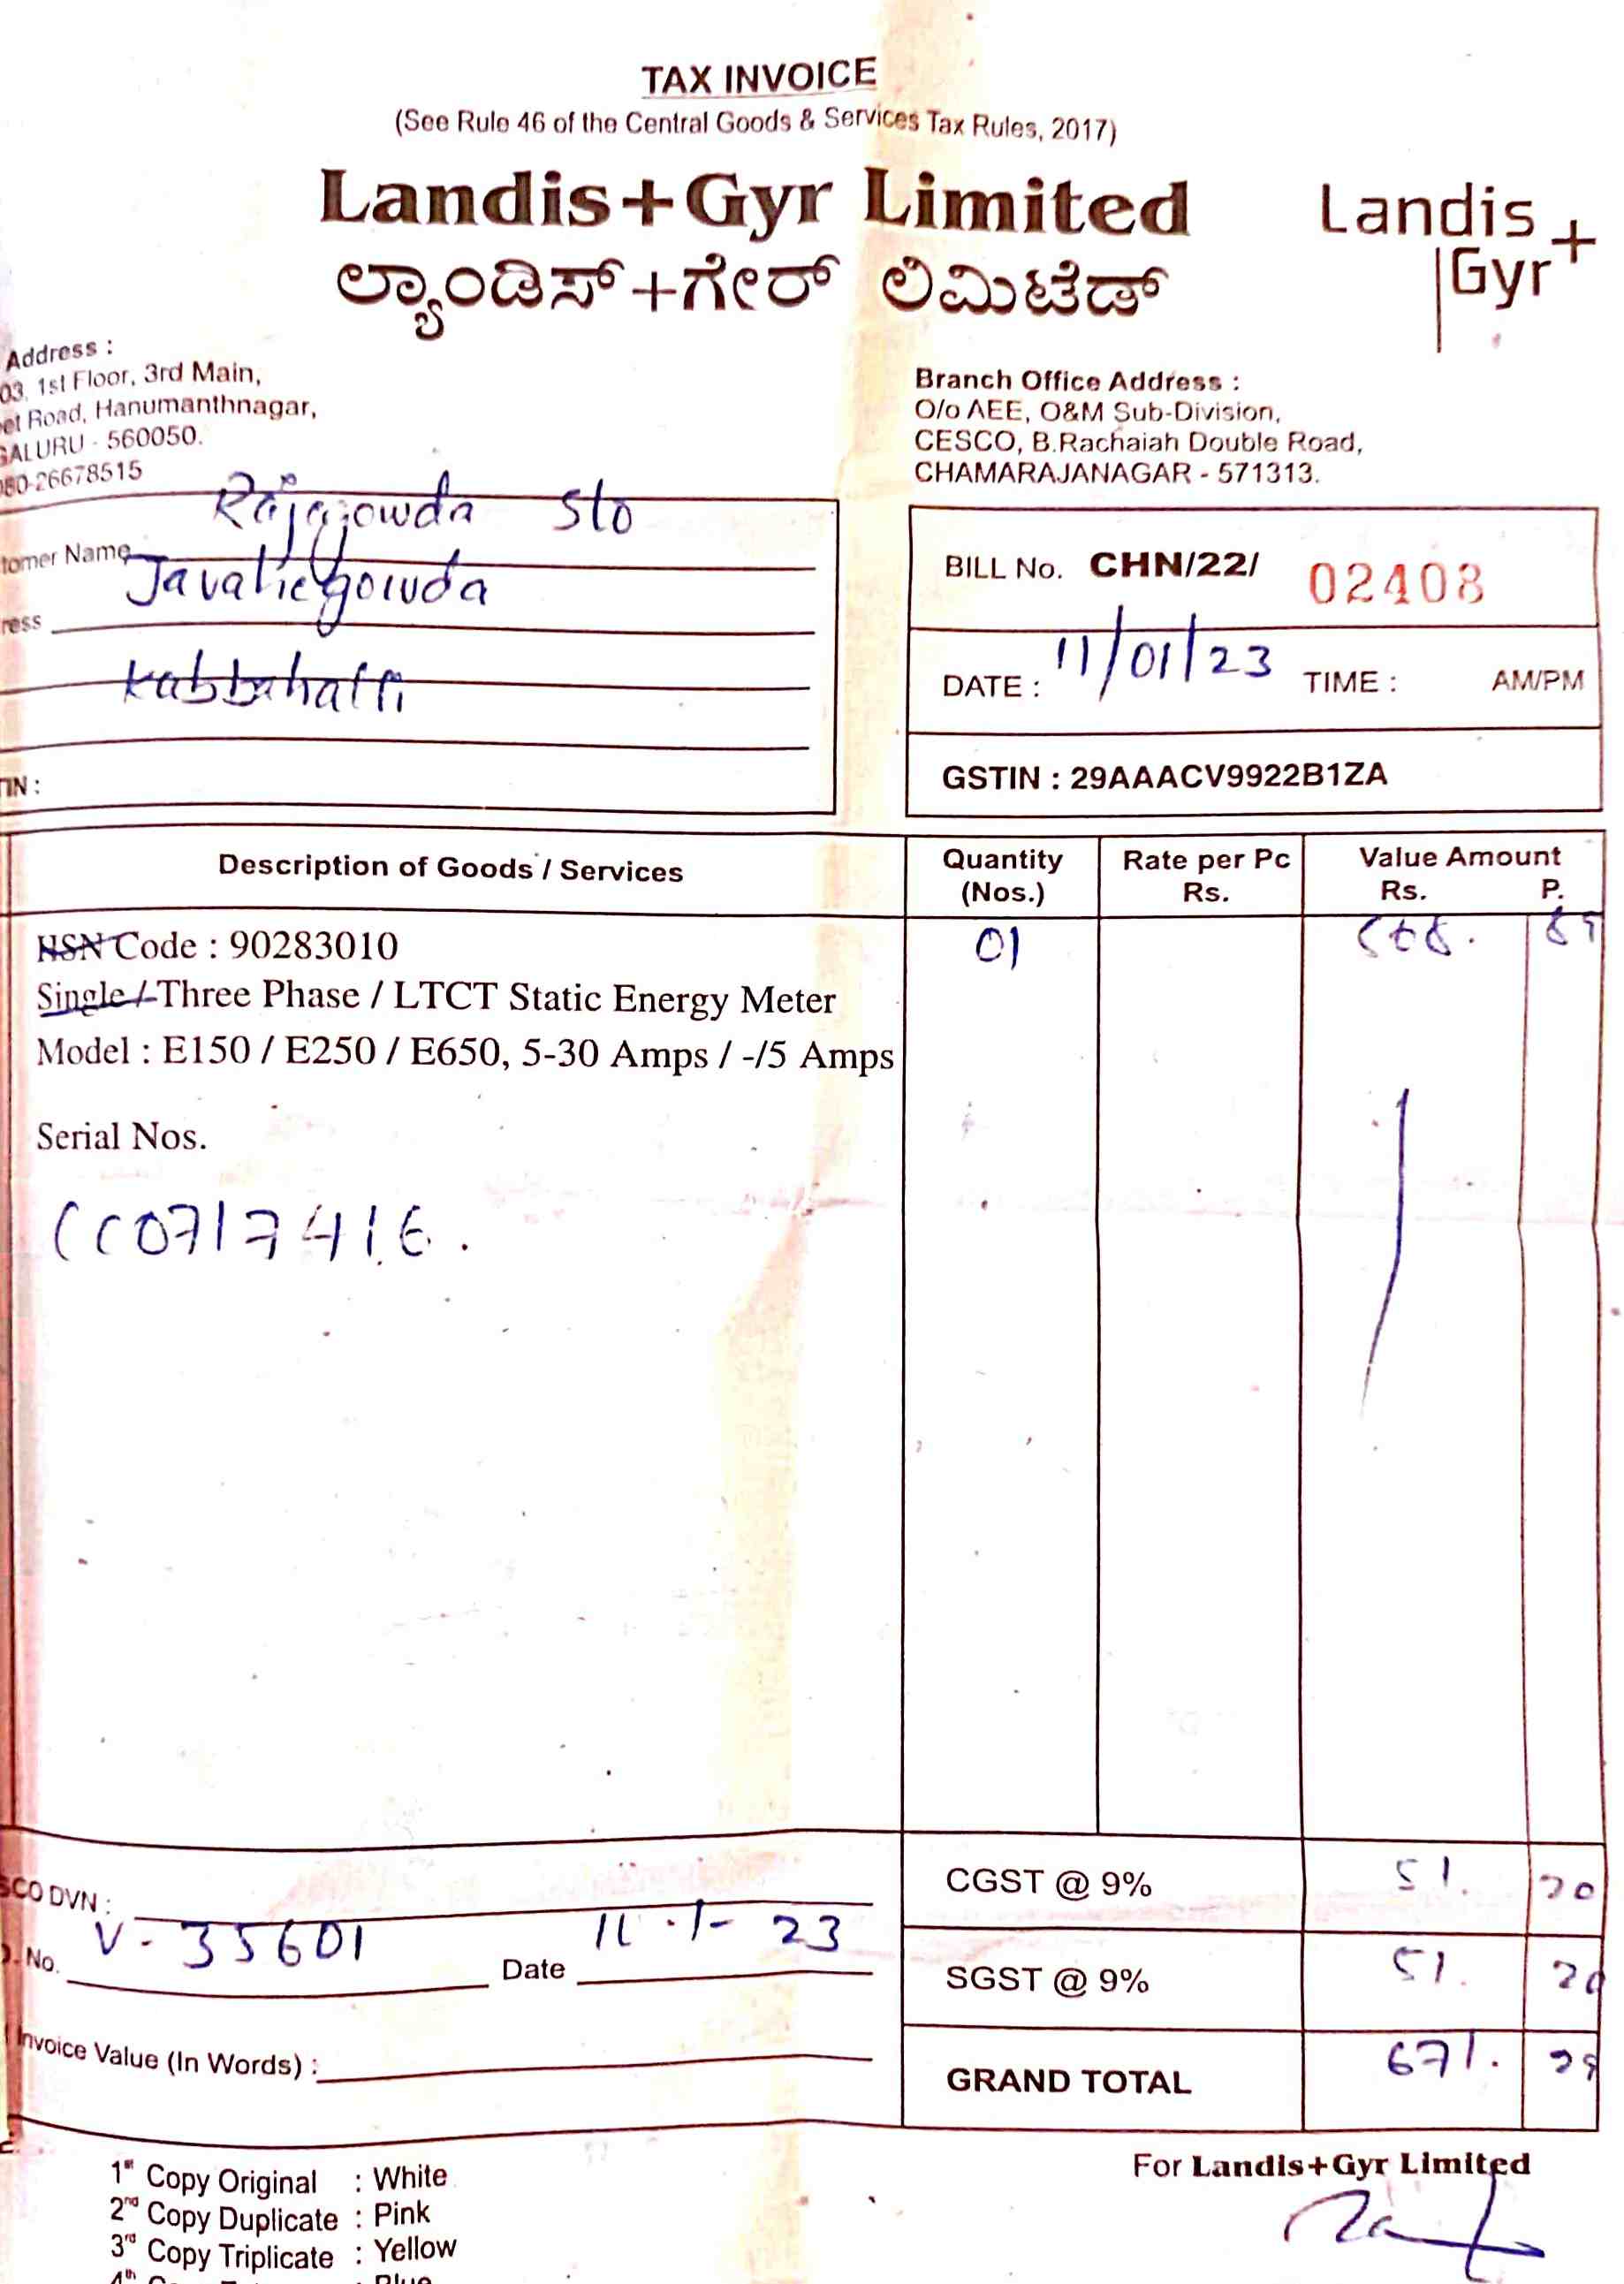 TAX INVOICE
(See Rule 46 of the Central Goods & Services Tax Rules, 2017)
Landis+Gyr Limited
ಲ್ಯಾಂಡಿಸ್+ಗೇರ್ ಲಿಮಿಟೆಡ್
Landis
Gyr+
Address :
03, 1st Floor, 3rd Main,
et Road, Hanumanthnagar,
GALURU - 560050.
080-26678515
Branch Office Address :
O/o AEE, O&M Sub-Division,
CESCO, B.Rachaiah Double Road,
CHAMARAJANAGAR - 571313.
tomer Name Rajegowda S/o
ress Javaliegowda
kabbahatti
TIN :
BILL No. CHN/22/ 02408
DATE : 11/01/23 TIME : AM/PM
GSTIN : 29AAACV9922B1ZA
Description of Goods / Services
Quantity (Nos.)
Rate per Pc Rs.
Value Amount
Rs. P.
HSN Code : 90283010
01
Single / Three Phase / LTCT Static Energy Meter
Model : E150 / E250 / E650, 5-30 Amps / -/5 Amps
Serial Nos.
CC0717416.
SCO DVN :
V - 35601
. No. Date 11-1-23
Invoice Value (In Words) :
CGST @ 9% 51. 20
SGST @ 9% 51. 20
GRAND TOTAL 671. 29
1st Copy Original : White
2nd Copy Duplicate : Pink
3rd Copy Triplicate : Yellow
For Landis+Gyr Limited